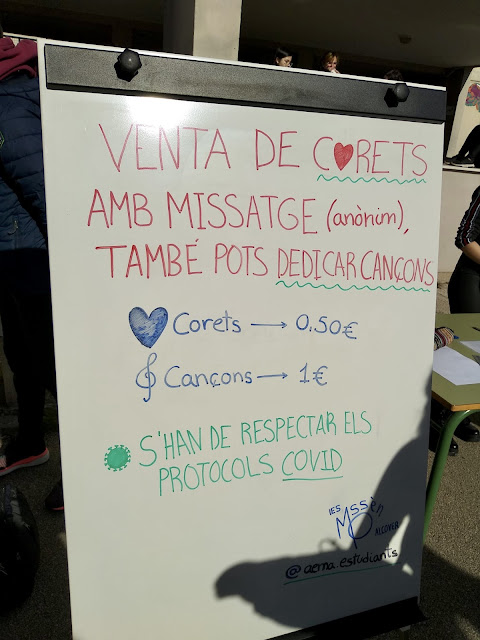 VENTA DE CORETS
AMB MISSATGE (anònim),
TAMBÉ POTS DEDICAR CANÇONS
Corets → 0,50€
Cançons → 1€
S'HAN DE RESPECTAR ELS
PROTOCOLS COVID
IES Mssèn
ALCOVER
@aema.estudiants